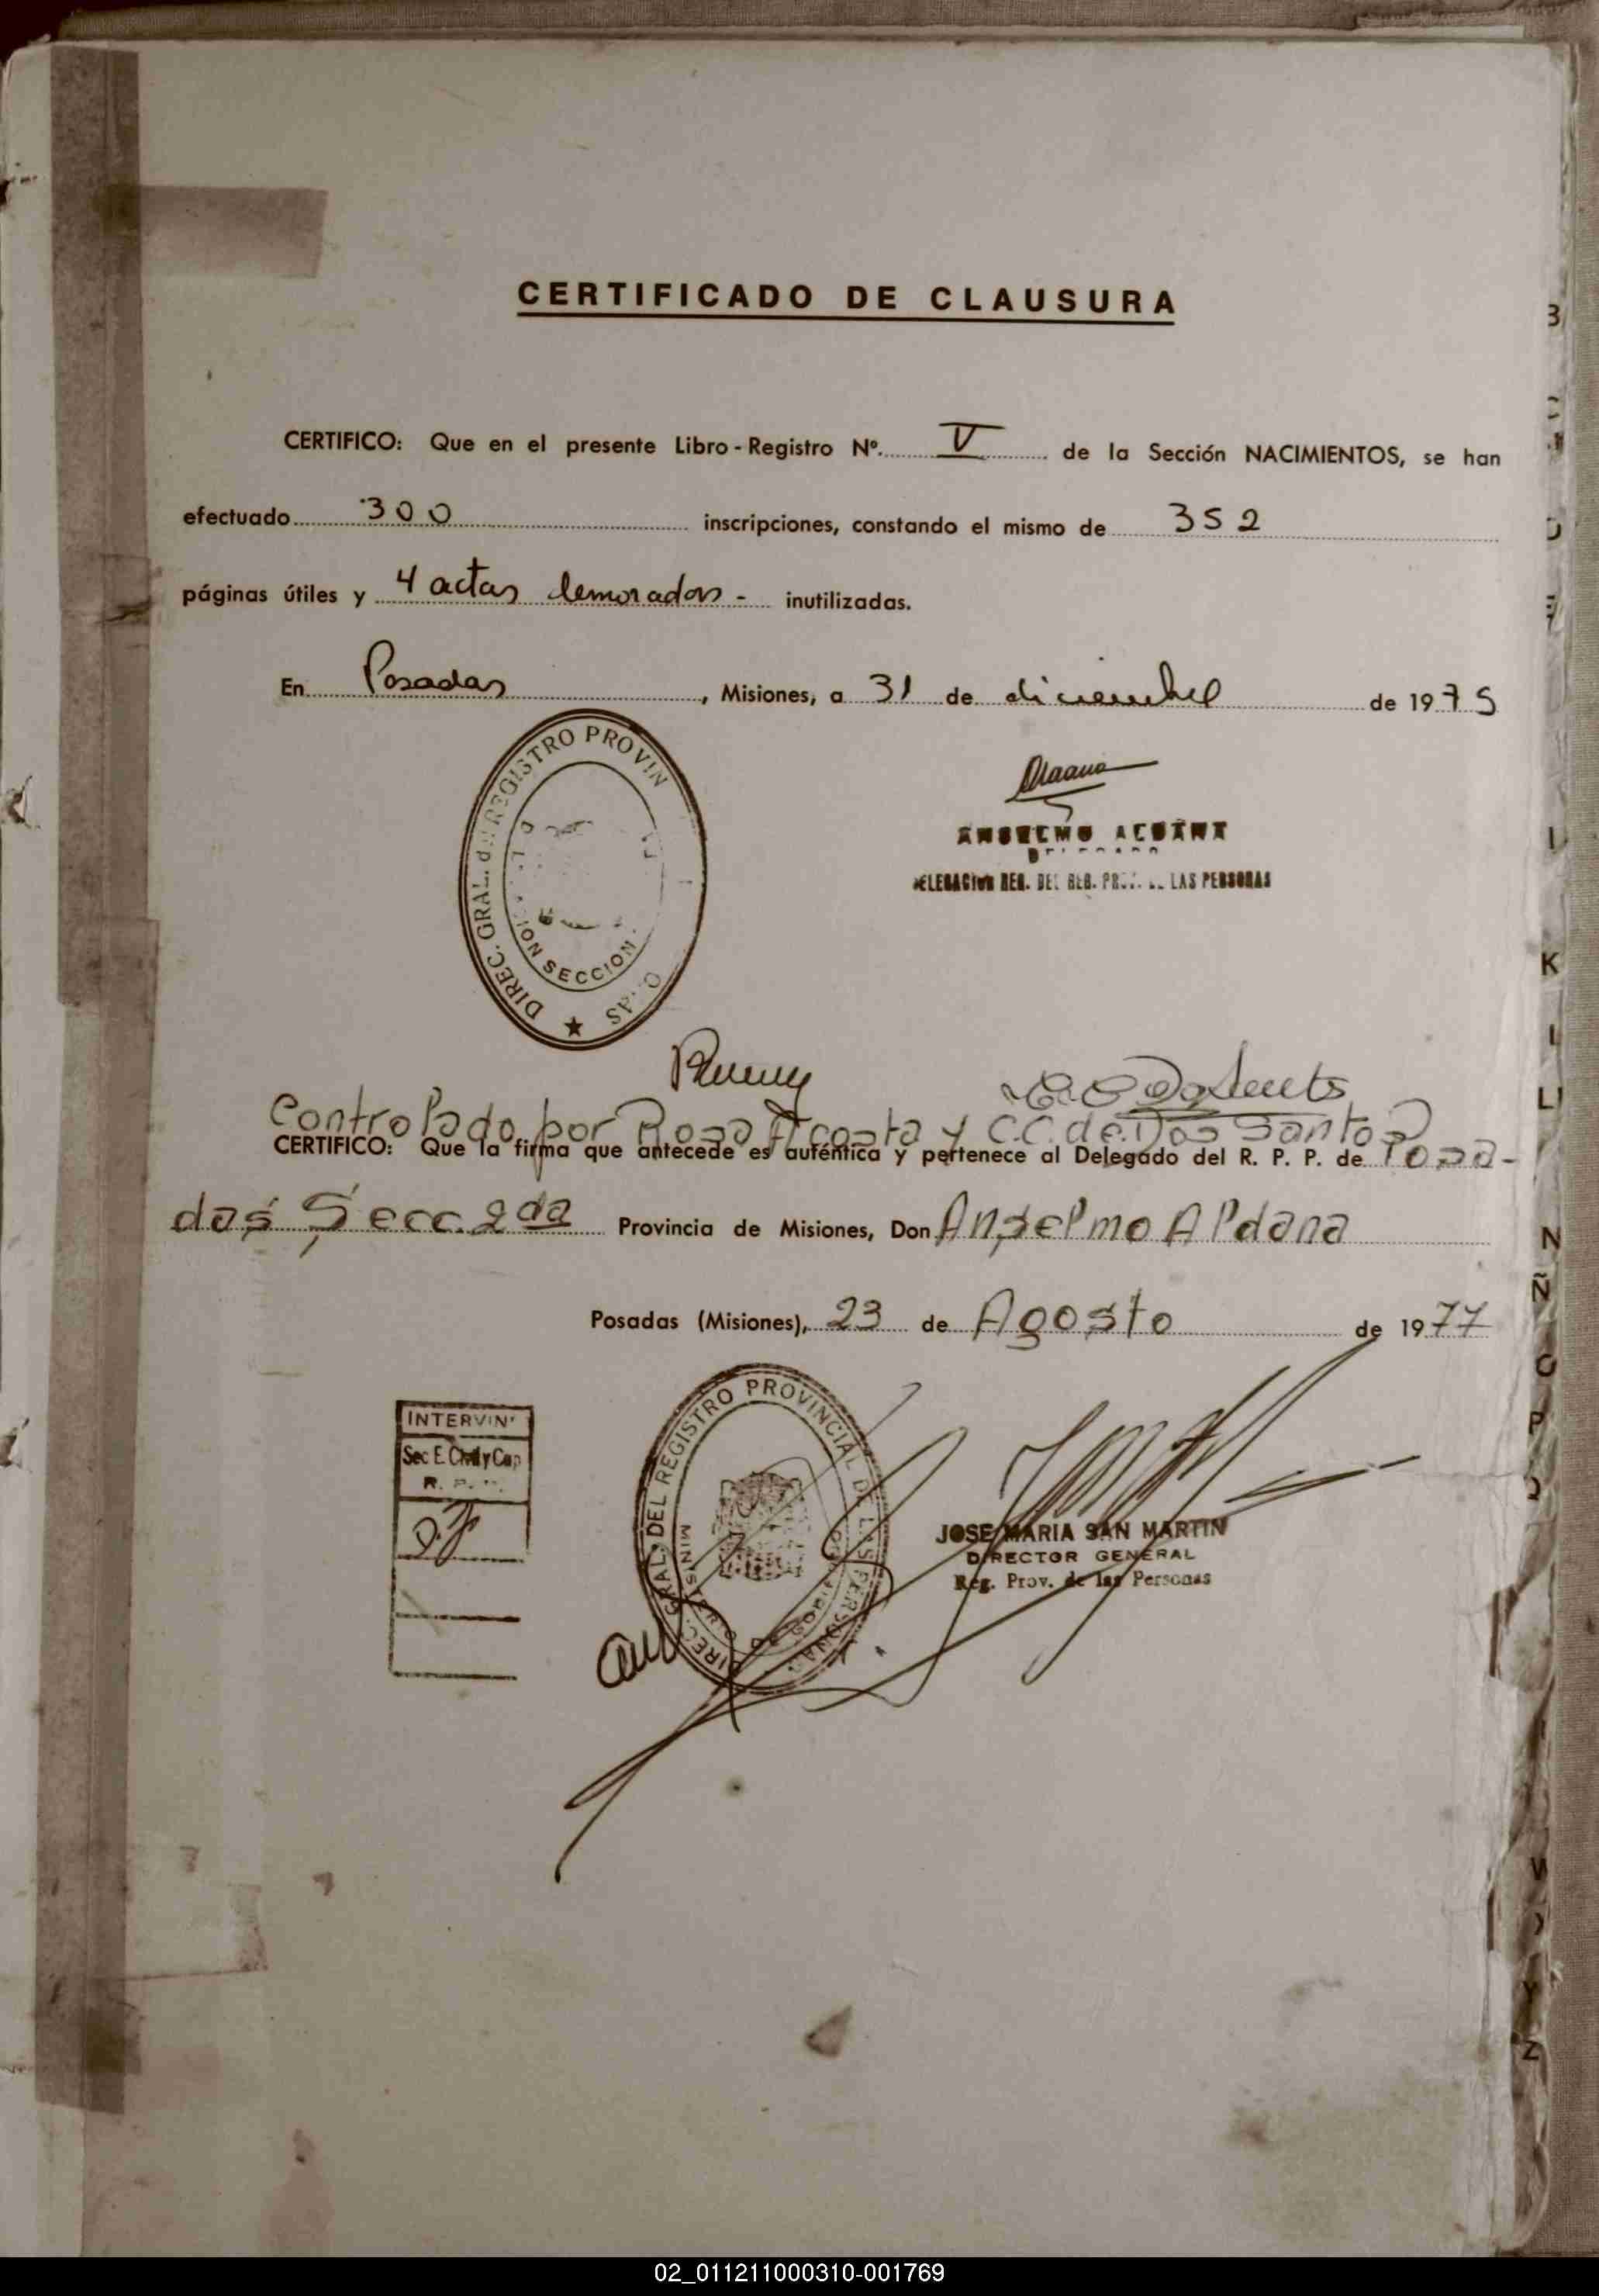 CERTIFICADO DE CLAUSURA
CERTIFICO: Que en el presente Libro-Registro Nº. V de la Sección NACIMIENTOS, se han
efectuado 300 inscripciones, constando el mismo de 352
páginas útiles y 4 actas demoradas - inutilizadas.
En Posadas, Misiones, a 31 de diciembre de 1975
DIREC. GRAL. REGISTRO PROVIN
SECCION
ANSELMO ALDANA
DELEGADO
DELEGACION REG. DEL REG. PROV. DE LAS PERSONAS
Controlado por Rosa Acosta y C.C. de Dos Santos
CERTIFICO: Que la firma que antecede es auténtica y pertenece al Delegado del R. P. P. de Posa-
das Secc. 2da Provincia de Misiones, Don Anselmo Aldana
Posadas (Misiones), 23 de Agosto de 1977
INTERVINO
Sec E. Civil y Cap
DIREC. GRAL. DEL REGISTRO PROVINCIAL DE LAS PERSONAS
MINISTERIO DE GOBIERNO
JOSE MARIA SAN MARTIN
DIRECTOR GENERAL
Reg. Prov. de las Personas
B
I
K
L
LL
N
Ñ
O
P
W
Y
Z
02_011211000310-001769